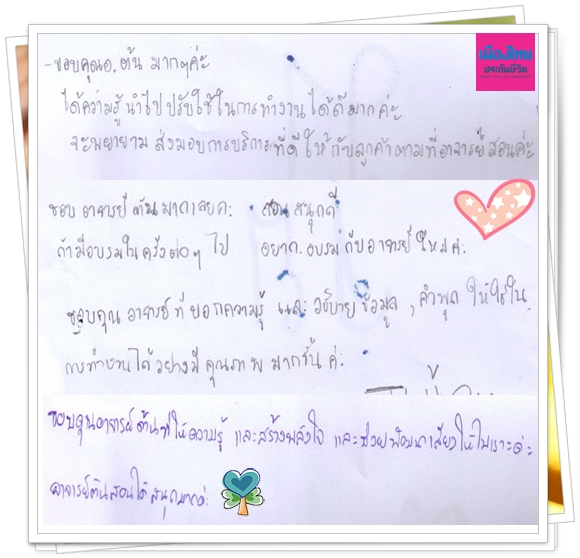 เมืองไทย
ประกันชีวิต
- ขอบคุณอ.ต้น มากๆค่ะ
ได้ความรู้นำไปปรับใช้ในการทำงานได้ดีมากค่ะ
จะพยายามส่งมอบการบริการที่ดีให้กับลูกค้าตามที่อาจารย์สอนค่ะ
ชอบ อาจารย์ต้นมากเลยค่ะ สอนสนุกดี
ถ้ามีอบรมในครั้งต่อๆ ไป อยาก.อบรม กับอาจารย์ใหม่ค่ะ
ขอบคุณ อาจารย์ ที่บอกความรู้ และ อธิบาย ข้อมูล , คำพูด ให้ใช้ใน
การทำงานได้อย่างมีคุณภาพ มากขึ้น ค่ะ
ขอบคุณอาจารย์ต้นที่ให้ความรู้ และสร้างพลังใจ และช่วยพัฒนาเสียงให้ไพเราะค่ะ
อาจารย์ต้นสอนได้สนุกมากค่ะ